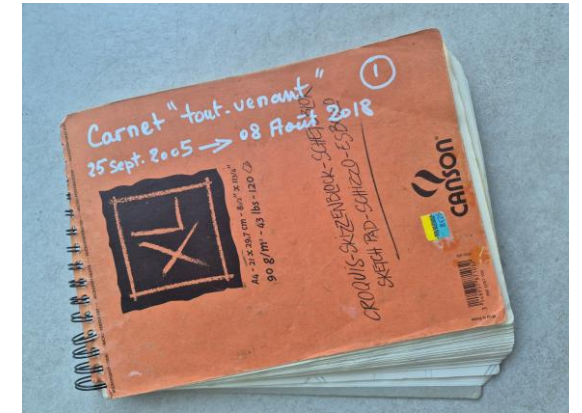 Carnet "tout-venant" ①
25 sept. 2005 → 08 Août 2018
XL
A4 - 21 x 29,7 cm - 8½" x 11¾"
90 g/m² - 43 lbs - 120
CROQUIS-SKIZZENBLOCK-SCHETSBLOK
SKETCH PAD-SCHIZZO-ESBOZO
CANSON